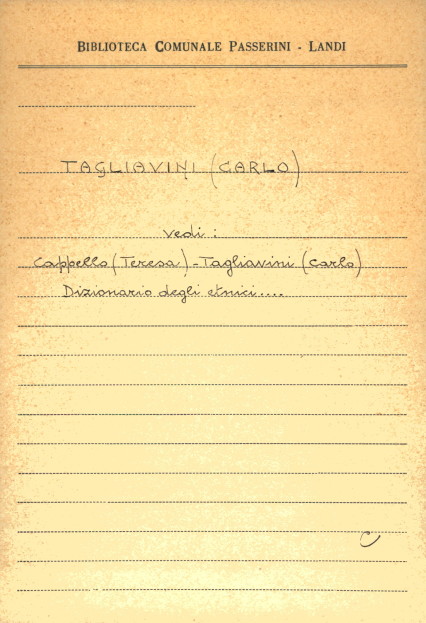 BIBLIOTECA COMUNALE PASSERINI - LANDI
TAGLIAVINI (CARLO)
vedi :
Cappello (Teresa) - Tagliavini (Carlo)
Dizionario degli etnici....
C